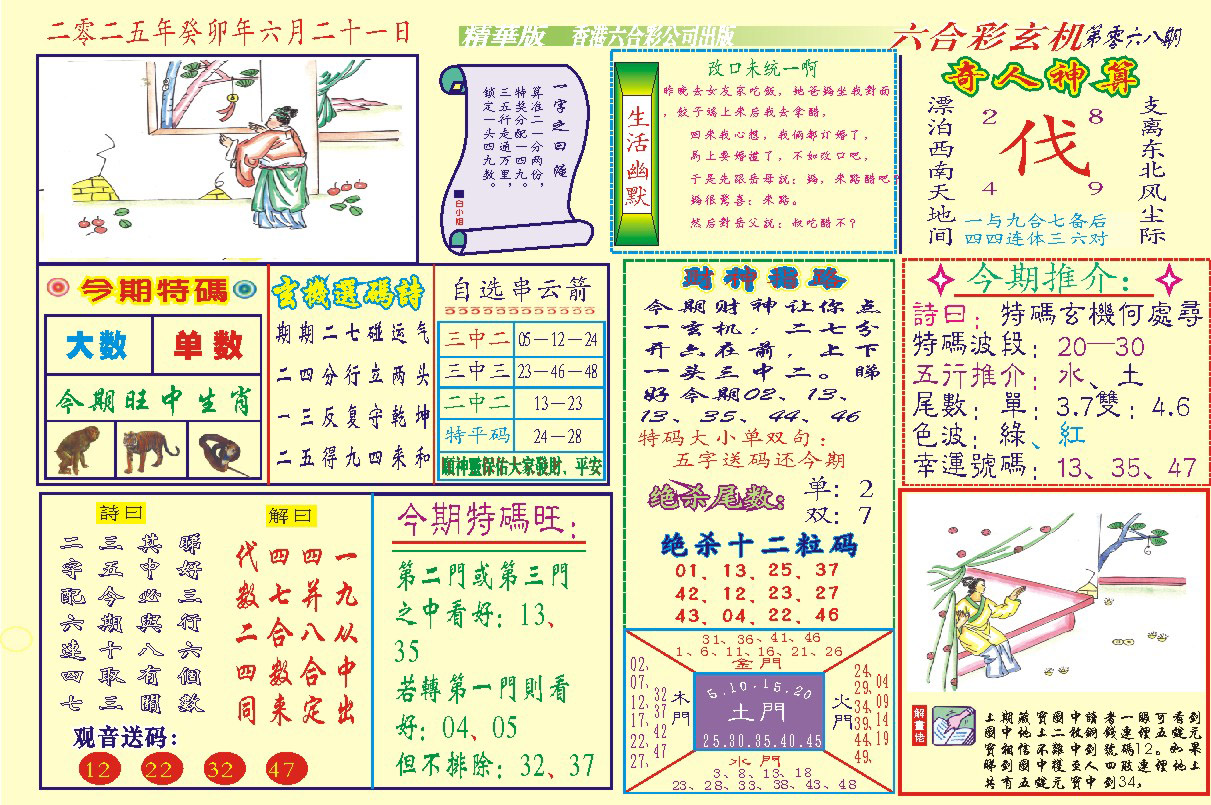 二零二五年癸卯年六月二十一日
精華版 香港六合彩公司出版
六合彩玄机第零六八期
一字之曰 隨
算准二一分两份,
特奖分配一四九。
三五行走通万里,
锁定一头四九数。
白小姐
生活幽默
改口未统一啊
昨晚去女友家吃飯,她爸媽坐我對面
,餃子端上来后我去拿醋,
回来我心想,我倆都订婚了,
馬上要婚禮了,不如改口吧,
于是先跟岳母説:媽,来點醋吧?
媽很驚喜:来點。
然后對岳父説:叔吃醋不?
奇人神算
漂泊西南天地间
2 8
伐
4 9
支离东北风尘际
一与九合七备后
四四连体三六对
今期特碼
大数 单数
今期旺中生肖
玄機選碼詩
期期二七碰运气
二四分行立两头
一三反复守乾坤
二五得九四来和
自选串云箭
三中二 05—12—24
三中三 23—46—48
二中二 13—23
特平码 24—28
願神靈保佑大家發財、平安
财神指路
今期财神让你点
一玄机,二七分
开六在前,上下
一头三中二。睇
好今期02、13、
13、35、44、46
特码大小单双句:
五字送码还今期
绝杀尾数:
单:2
双:7
绝杀十二粒码
01、13、25、37
42、12、23、27
43、04、22、46
今期推介:
詩曰:特碼玄機何處尋
特碼波段:20—30
五行推介:水、土
尾數:單:3.7雙:4.6
色波:綠、紅
幸運號碼:13、35、47
詩曰
睇好三行六個數
其中必與八有關
三五今期十取三
二字配六連四七
解曰
一九从中出
四并八合定
四七合数来
代数二四同
观音送码:
12 22 32 47
今期特碼旺:
第二門或第三門
之中看好:13、
35
若轉第一門則看
好:04、05
但不排除:32、37
31、36、41、46
1、6、11、16、21、26
金門
02、07、12、17、22、27、
32、37、42、47
木門
5.10.15.20
土門
25.30.35.40.45
火門
24、29、34、39、44、49、
04、09、14、19
水門
3、8、13、18
23、28、33、38、43、48
解畫佬
上期藏寶圖中讀者一眼可看到
圖中地上二枚銅錢連裡五錠元
寶相信不難中到號碼12。如果
睇到圖中樓至人四肢連裡地上
共有五錠元寶中到34,